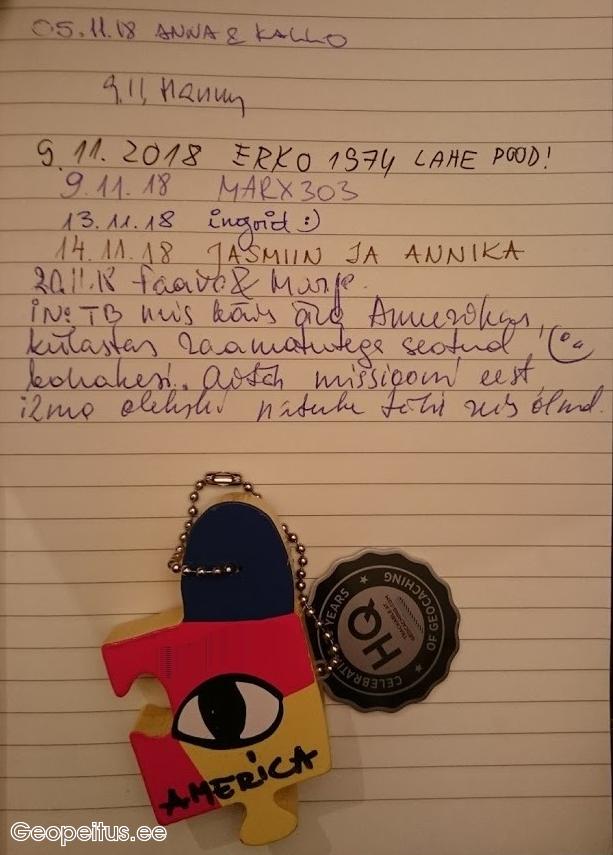 05.11.18 ANNA & KALLO
9.11 Hanny
9.11.2018 ERKO1974 LAHE POOD!
9.11.18 MARX303
13.11.18 ingrid :)
14.11.18 JASMIIN JA ANNIKA
20.11.18 & Marje.
IN: TB mis käis ära Ameerikas,
külastas raamatutega seotud
kohakesi. Aitäh missiooni eest,
ilma olekski natuke tühi reis olnud.
CELEBRATING YEARS OF GEOCACHING
HQ
TRACKABLE AT
GEOCACHING.COM
AMERICA
Geopeitus.ee